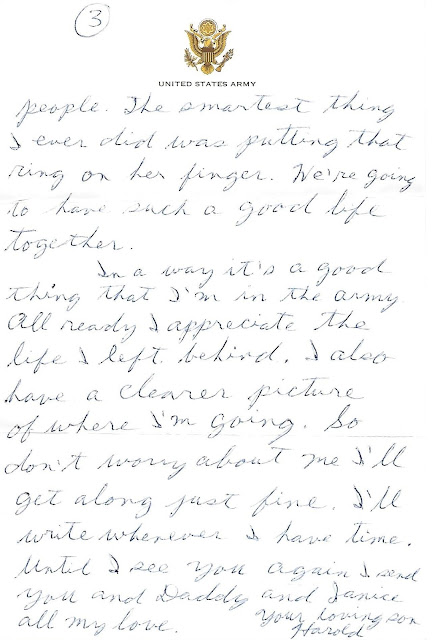 3
UNITED STATES ARMY
people. The smartest thing
I ever did was putting that
ring on her finger. We're going
to have such a good life
together.
In a way it's a good
thing that I'm in the army
All ready I appreciate the
life I left behind. I also
have a clearer picture
of where I'm going. So
don't worry about me I'll
get along just fine. I'll
write whenever I have time.
Until I see you again I send
you and Daddy and Janice
all my love.
Your loving son
Harold